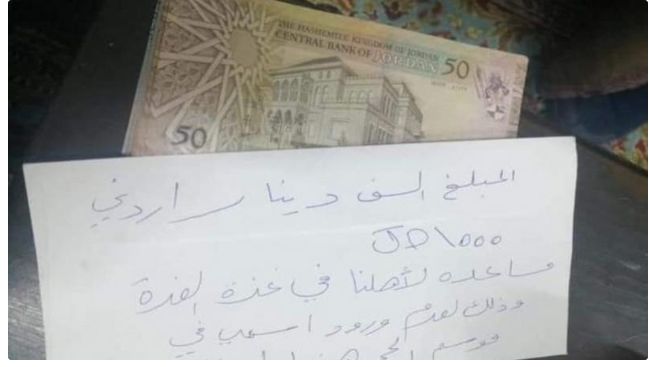 THE HASHEMITE KINGDOM OF JORDAN
CENTRAL BANK OF JORDAN 50
50
المبلغ الف دينار اردني
JD ١٥٥٥
مساعده لأهلنا في غزة العزة
وذلك لعدم ورود اسمي في
موسم الحج